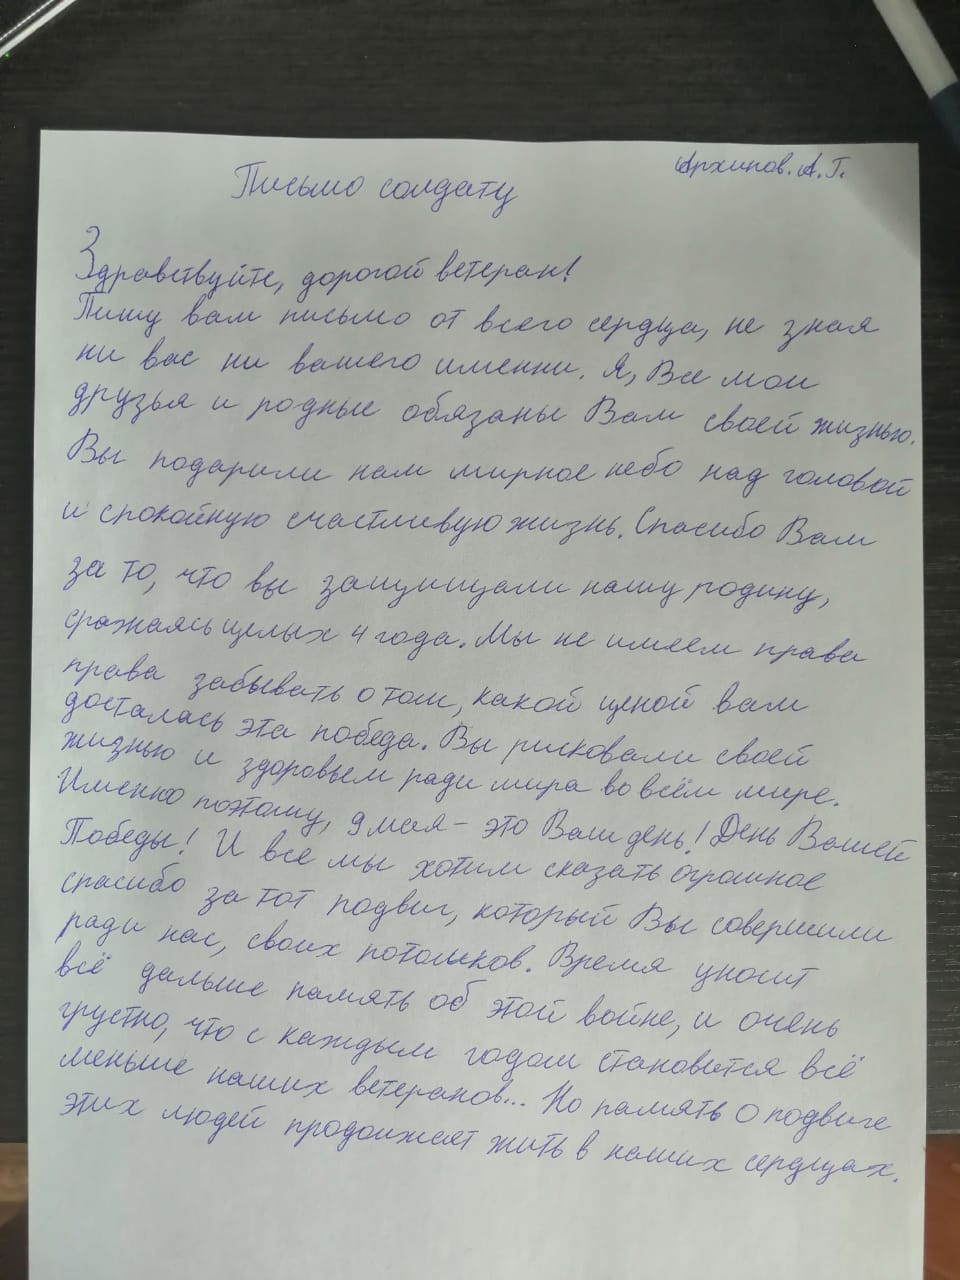 Архипов. А. Г.
Письмо солдату
Здравствуйте, дорогой ветеран!
Пишу вам письмо от всего сердца, не зная
ни вас ни вашего именни. Я, Все мои
друзья и родные обязаны Вам своей жизнью.
Вы подарили нам мирное небо над головой
и спокойную счастливую жизнь. Спасибо Вам
за то, что вы защищали нашу родину,
сражаясь целых 4 года. Мы не имеем права
права забывать о том, какой ценой вам
досталась эта победа. Вы рисковали своей
жизнью и здоровьем ради мира во всём мире.
Именно поэтому, 9 мая - это Ваш день! День Вашей
Победы! И все мы хотим сказать огромное
спасибо за тот подвиг, который Вы совершили
ради нас, своих потомков. Время уносит
всё дальше память об этой войне, и очень
грустно, что с каждым годом становится всё
меньше наших ветеранов... Но память о подвиге
этих людей продолжает жить в наших сердцах.